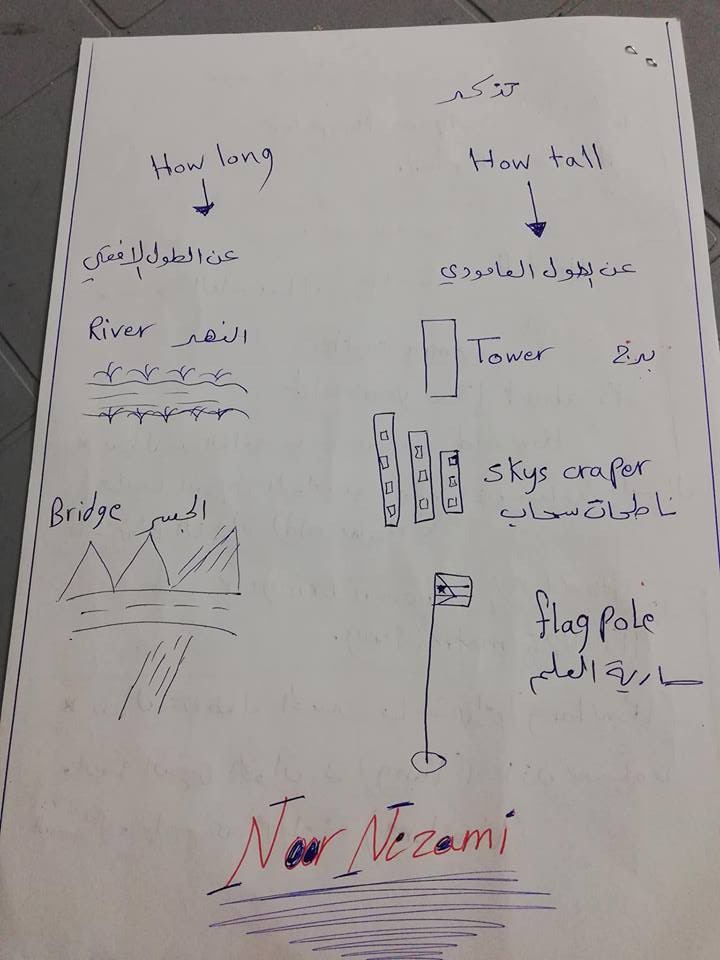 تذكر
How long
How tall
عن الطول الافقي
عن الطول العامودي
River النهر
Tower برج
skys craper
ناطحات سحاب
Bridge الجسر
flag pole
سارية العلم
Noor Nezami